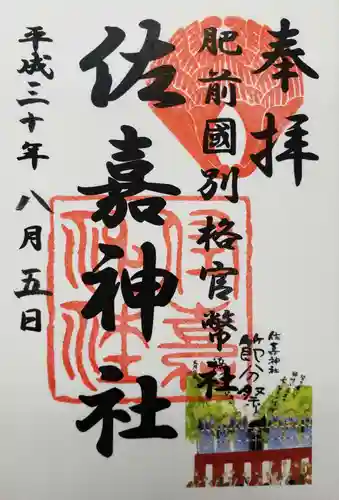 奉拝
肥前國別格官幣社
佐嘉神社
平成三十年八月五日
佐嘉神社
節分祭